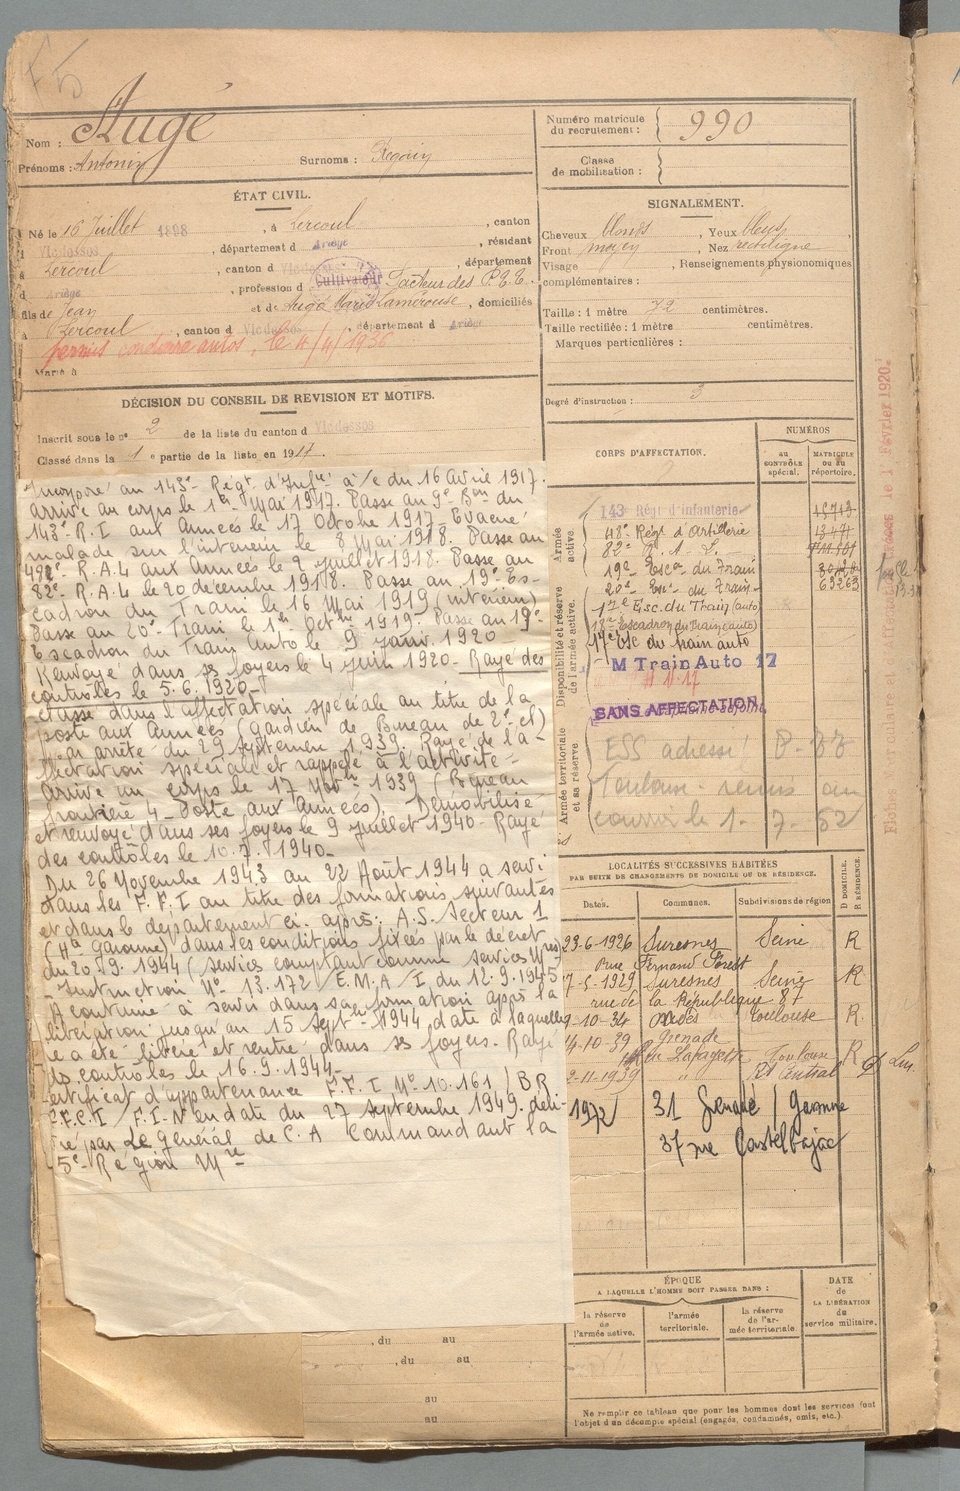 Nom : Augé
Prénoms : Antonin
Surnoms :
Numéro matricule du recrutement : 990
Classe de mobilisation :
ÉTAT CIVIL.
Né le 16 Juillet 1898, à Lercoul, canton
d Vicdessos, département d Ariège, résidant
à Lercoul, canton d Vicdessos, département
d Ariège, profession d Cultivateur Facteur des P.T.T.
fils de Jean et de Augé Marie Lamérouse, domiciliés
à Lercoul, canton d Vicdessos, département d Ariège
permis conduire autos, le 4/4/1936
Marié à
SIGNALEMENT.
Cheveux blonds, Yeux bleus
Front moyen, Nez rectiligne
Visage , Renseignements physionomiques
complémentaires :
Taille : 1 mètre 72 centimètres.
Taille rectifiée : 1 mètre centimètres.
Marques particulières :
Degré d'instruction : 3
DÉCISION DU CONSEIL DE REVISION ET MOTIFS.
Inscrit sous le nº 2 de la liste du canton d Vicdessos
Classé dans la 1e partie de la liste en 1917.
Incorporé au 143e Régt d'Infie à/c du 16 Avril 1917.
arrivé au corps le 1er Mai 1917. Passé au 9e Bon du
143e R.I aux Armées le 17 Octobre 1917. Evacué
malade sur l'intérieur le 8 Mai 1918. Passe au
R.A.L aux Armées le 9 Juillet 1918. Passe au
82e R.A.L le 20 décembre 1918. Passe au 19e Es-
cadron du Train le 16 Mai 1919 (intérieur)
Passe au 20e Train le 1er Octbre 1919. Passe au 19e
Escadron du Train Auto le 9 Janv. 1920
Renvoyé dans ses foyers le 4 Juin 1920 - Rayé des
contrôles le 5.6.1920 -
Classé dans l'affectation spéciale au titre de la
poste aux Armées (Gardien de Bureau de 2e cl)
par arrêté du 29 septembre 1939. Rayé de l'a-
ffectation spéciale et rappelé à l'activité -
Arrivé au corps le 17 Novbre 1939 (Bureau
frontière 4 - Poste aux Armées). Démobilisé
et renvoyé dans ses foyers le 9 Juillet 1940 - Rayé
des contrôles le 10.7.1940 -
Du 26 Novembre 1943 au 22 Août 1944 a servi
dans les F.F.I au titre des formations suivantes
et dans le département ci-après : A.S. Secteur 1
(Hte Garonne) dans les conditions fixées par le décret
du 20.9.1944 (services comptant comme services Mres
- Instruction Nº 13.172/E.M.A/I du 12.9.1945
A continué à servir dans sa formation après la
libération jusqu'au 15 Septbre 1944 date à laquelle
il a été libéré et rentré dans ses foyers. Rayé
des contrôles le 16.9.1944 -
Certificat d'appartenance F.F.I Nº 10.161/BR
F.F.C.I/F.I.N en date du 27 septembre 1949. déli-
vré par Le Général de C.A Commandant la
5e Région Mre
CORPS D'AFFECTATION.
NUMÉROS
au CONTRÔLE spécial.
MATRICULE OU AU répertoire.
Armée active.
143e Régt d'infanterie
48e Régt d'Artillerie
82e R.A.L.
19e Escon du Train
20e Esc. du Train 69263
Disponibilité et réserve de l'armée active.
17e Esc. du Train (auto)
18e Escadron du Train (auto)
17e Esc du train auto
M Train Auto 17
SANS AFFECTATION
Armée territoriale et sa réserve
ESS adressé B-77
Toulouse - remis au
courrier le 1 - 7 - 52
LOCALITÉS SUCCESSIVES HABITÉES
PAR SUITE DE CHANGEMENTS DE DOMICILE OU DE RÉSIDENCE.
Dates. Communes. Subdivisions de région
D DOMICILE. R RÉSIDENCE.
23-6-1926 Suresnes Seine R
rue Fernand Forest
7-5-1929 Suresnes Seine R
rue de la République 87
9-10-34 Toulouse R
14-10-39 Grenade
rue Lafayette Toulouse R
2-11-1939 " Bt Central
1972 31 Grenade / Garonne
37 rue Castelbajac
ÉPOQUE
A LAQUELLE L'HOMME DOIT PASSER DANS :
la réserve de l'armée active.
l'armée territoriale.
la réserve de l'armée territoriale.
DATE de LA LIBÉRATION du service militaire.
, du au
, du au
au
au
Ne remplir ce tableau que pour les hommes dont les services font
l'objet d'un décompte spécial (engagés, condamnés, omis, etc.).